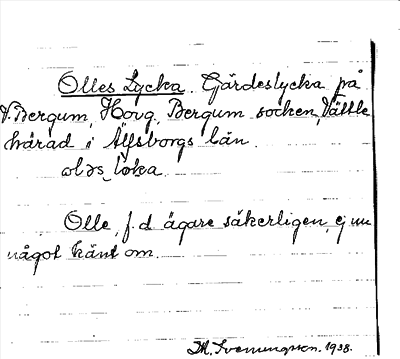 Olles Lycka. Gärdeslycka på
V. Bergum, Hovg, Bergum socken, Vättle
härad i Älfsborgs län.
oləs, löka.
Olle, f.d. ägare säkerligen, ej nu
något känt om.
M. Svenungsson. 1938.